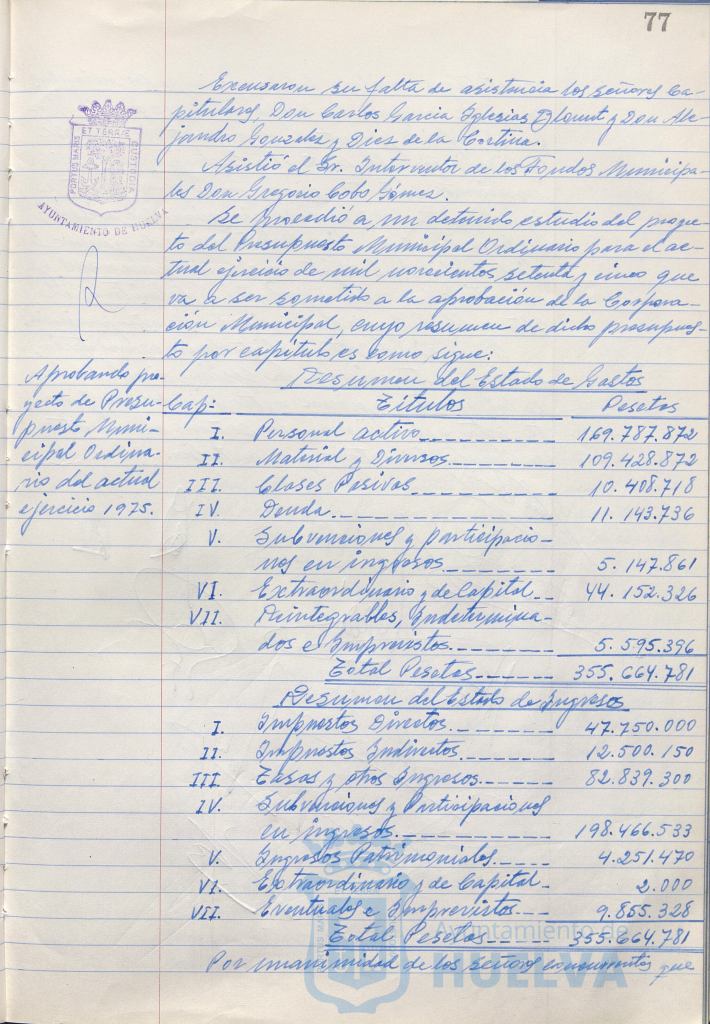 77
Excusaron su falta de asistencia los señores Ca-
pitulares, Don Carlos Garcia Iglesias y Don Ale-
jandro Gonzalez y Diez de la Cortina.
Asistió el Sr. Interventor de los Fondos Municipa-
les Don Gregorio Cobo Gómez.
Se procedió a un detenido estudio del proyec-
to del Presupuesto Municipal Ordinario para el ac-
tual ejercicio de mil novecientos setenta y cinco que
va a ser sometido a la aprobación de la Corpora-
ción Municipal, cuyo resumen de dicho presupues-
to por capítulo es como sigue:
PORTUS MARIS ET TERRAE CUSTODIA
AYUNTAMIENTO DE HUELVA
Aprobando pro-
yecto de Presu-
puesto Muni-
cipal Ordina-
rio del actual
ejercicio 1975.
Resumen del Estado de Gastos
Cap: Títulos Pesetas
I. Personal activo 169.787.872
II. Material y Diversos 109.428.872
III. Clases Pasivas 10.408.718
IV. Deuda 11.143.736
V. Subvenciones y participacio-
nes en ingresos 5.147.861
VI. Extraordinario y de Capital 44.152.326
VII. Reintegrables, Indetermina-
dos e Imprevistos 5.595.396
Total Pesetas 355.664.781
Resumen del Estado de Ingresos
I. Impuestos Directos 47.750.000
II. Impuestos Indirectos 12.500.150
III. Tasas y otros Ingresos 82.839.300
IV. Subvenciones y Participaciones
en ingresos. 198.466.533
V. Ingresos Patrimoniales 4.251.470
VI. Extraordinario y de Capital 2.000
VII. Eventuales e Imprevistos 9.855.328
Total Pesetas 355.664.781
Por unanimidad de los señores concurrentes que
Ayuntamiento de
HUELVA